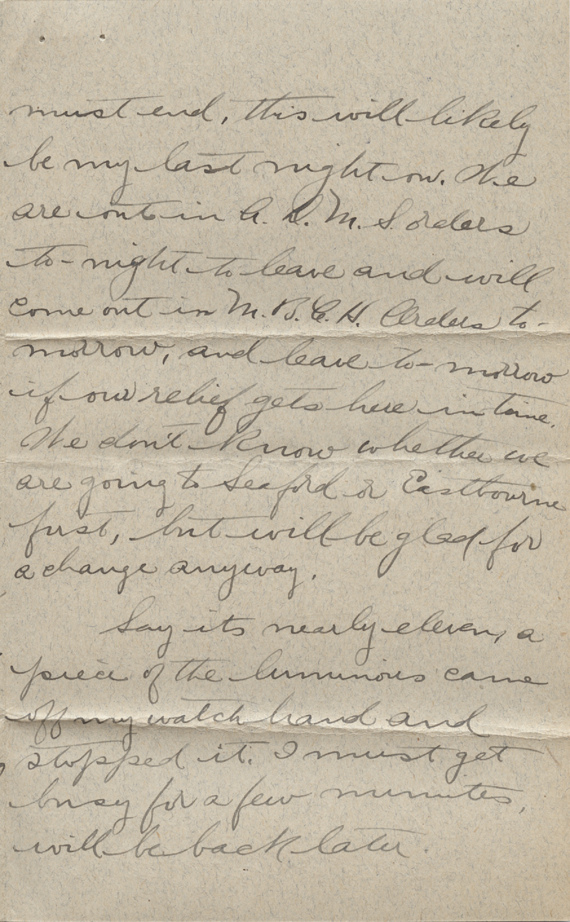 must end, this will likely
be my last night on. We
are out in A. D. M. S. orders
to-night to leave and will
come out in M. B. C. H. Orders to-
morrow, and leave to-morrow
if our relief gets here in time.
We don't know whether we
are going to Seaford or Eastbourne
first, but will be glad for
a change anyway.
Say its nearly eleven, a
piece of the luminous came
off my watch hand and
stopped it. I must get
busy for a few minutes,
will be back later.